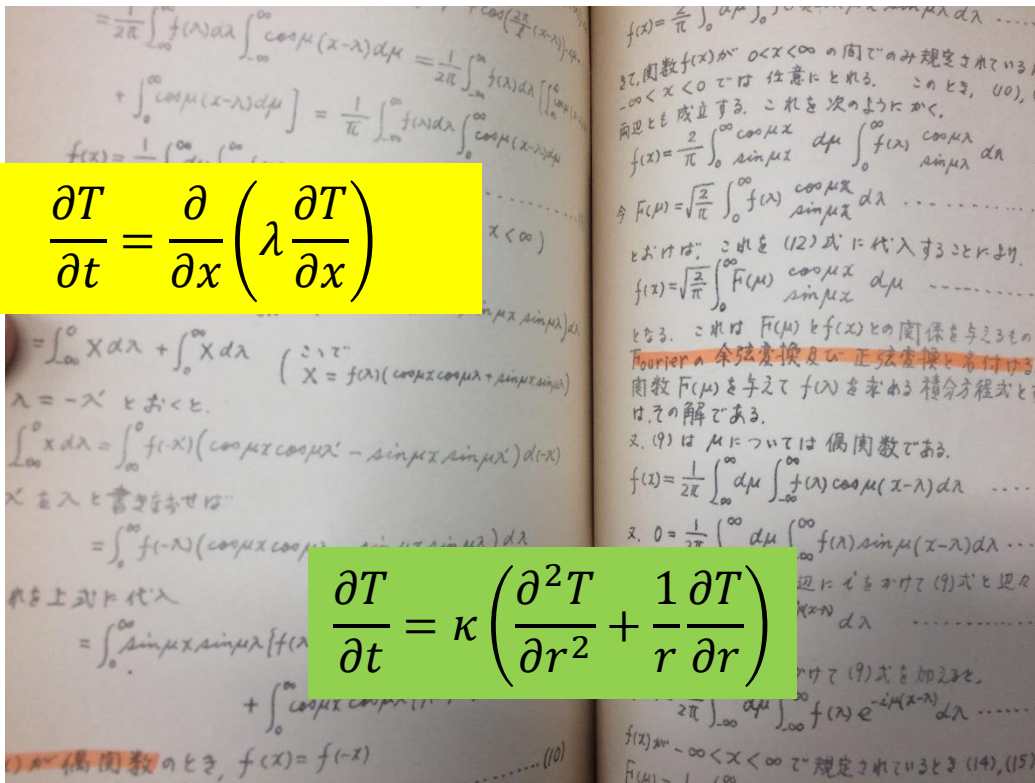 = 1/2π ∫_{-∞}^{∞} f(λ)dλ ∫_{-∞}^{∞} cosμ(x-λ)dμ = 1/2π ∫_{-∞}^{∞} f(λ)dλ
+ ∫_0^∞ cosμ(x-λ)dμ ] = 1/π ∫_{-∞}^{∞} f(λ)dλ ∫_0^∞ cosμ(x-λ)dμ
∂T/∂t = ∂/∂x (λ ∂T/∂x)
x < ∞ )
= ∫_{-∞}^0 X dλ + ∫_0^∞ X dλ
X = f(λ)(cosμx cosμλ + sinμx sinμλ)
λ = -λ' とおくと.
∫_{-∞}^0 X dλ = ∫_∞^0 f(-λ')(cosμx cosμλ' - sinμx sinμλ') d(-λ')
λ' をλと書きなおせば
= ∫_0^∞ f(-λ)(cosμx cosμλ - sinμx sinμλ) dλ
れを上式に代入
= ∫_0^∞ sinμx sinμλ {f(λ
が偶関数のとき, f(x) = f(-x) (10)
さて, 関数 f(x) が 0<x<∞ の間でのみ規定されている
-∞<x<0 では 任意にとれる. このとき, (10),
両辺とも成立する. これを次のようにかく.
f(x) = 2/π ∫_0^∞ cosμx sinμx dμ ∫_0^∞ f(λ) cosμλ sinμλ dλ
今 F(μ) = √(2/π) ∫_0^∞ f(λ) cosμλ sinμλ dλ
とおけば, これを (12) 式に代入することにより.
f(x) = √(2/π) ∫_0^∞ F(μ) cosμx sinμx dμ
となる. これは F(μ) と f(x) との関係を与えるもの
Fourier の 余弦変換及び 正弦変換と名付ける
関数 F(μ) を与えて f(λ) を求める 積分方程式と
は, その解である.
又, (9) は μ については 偶関数である.
f(x) = 1/2π ∫_{-∞}^∞ dμ ∫_{-∞}^∞ f(λ) cosμ(x-λ) dλ
又, 0 = 1/2π ∫_{-∞}^∞ dμ ∫_{-∞}^∞ f(λ) sinμ(x-λ) dλ
∂T/∂t = κ (∂²T/∂r² + 1/r ∂T/∂r)
辺に i をかけて (9) 式と辺々
かけて (9) 式を加えると,
1/2π ∫_{-∞}^∞ dμ ∫_{-∞}^∞ f(λ) e^{-iμ(x-λ)} dλ
f(x) が -∞<x<∞ で規定されているとき (14),